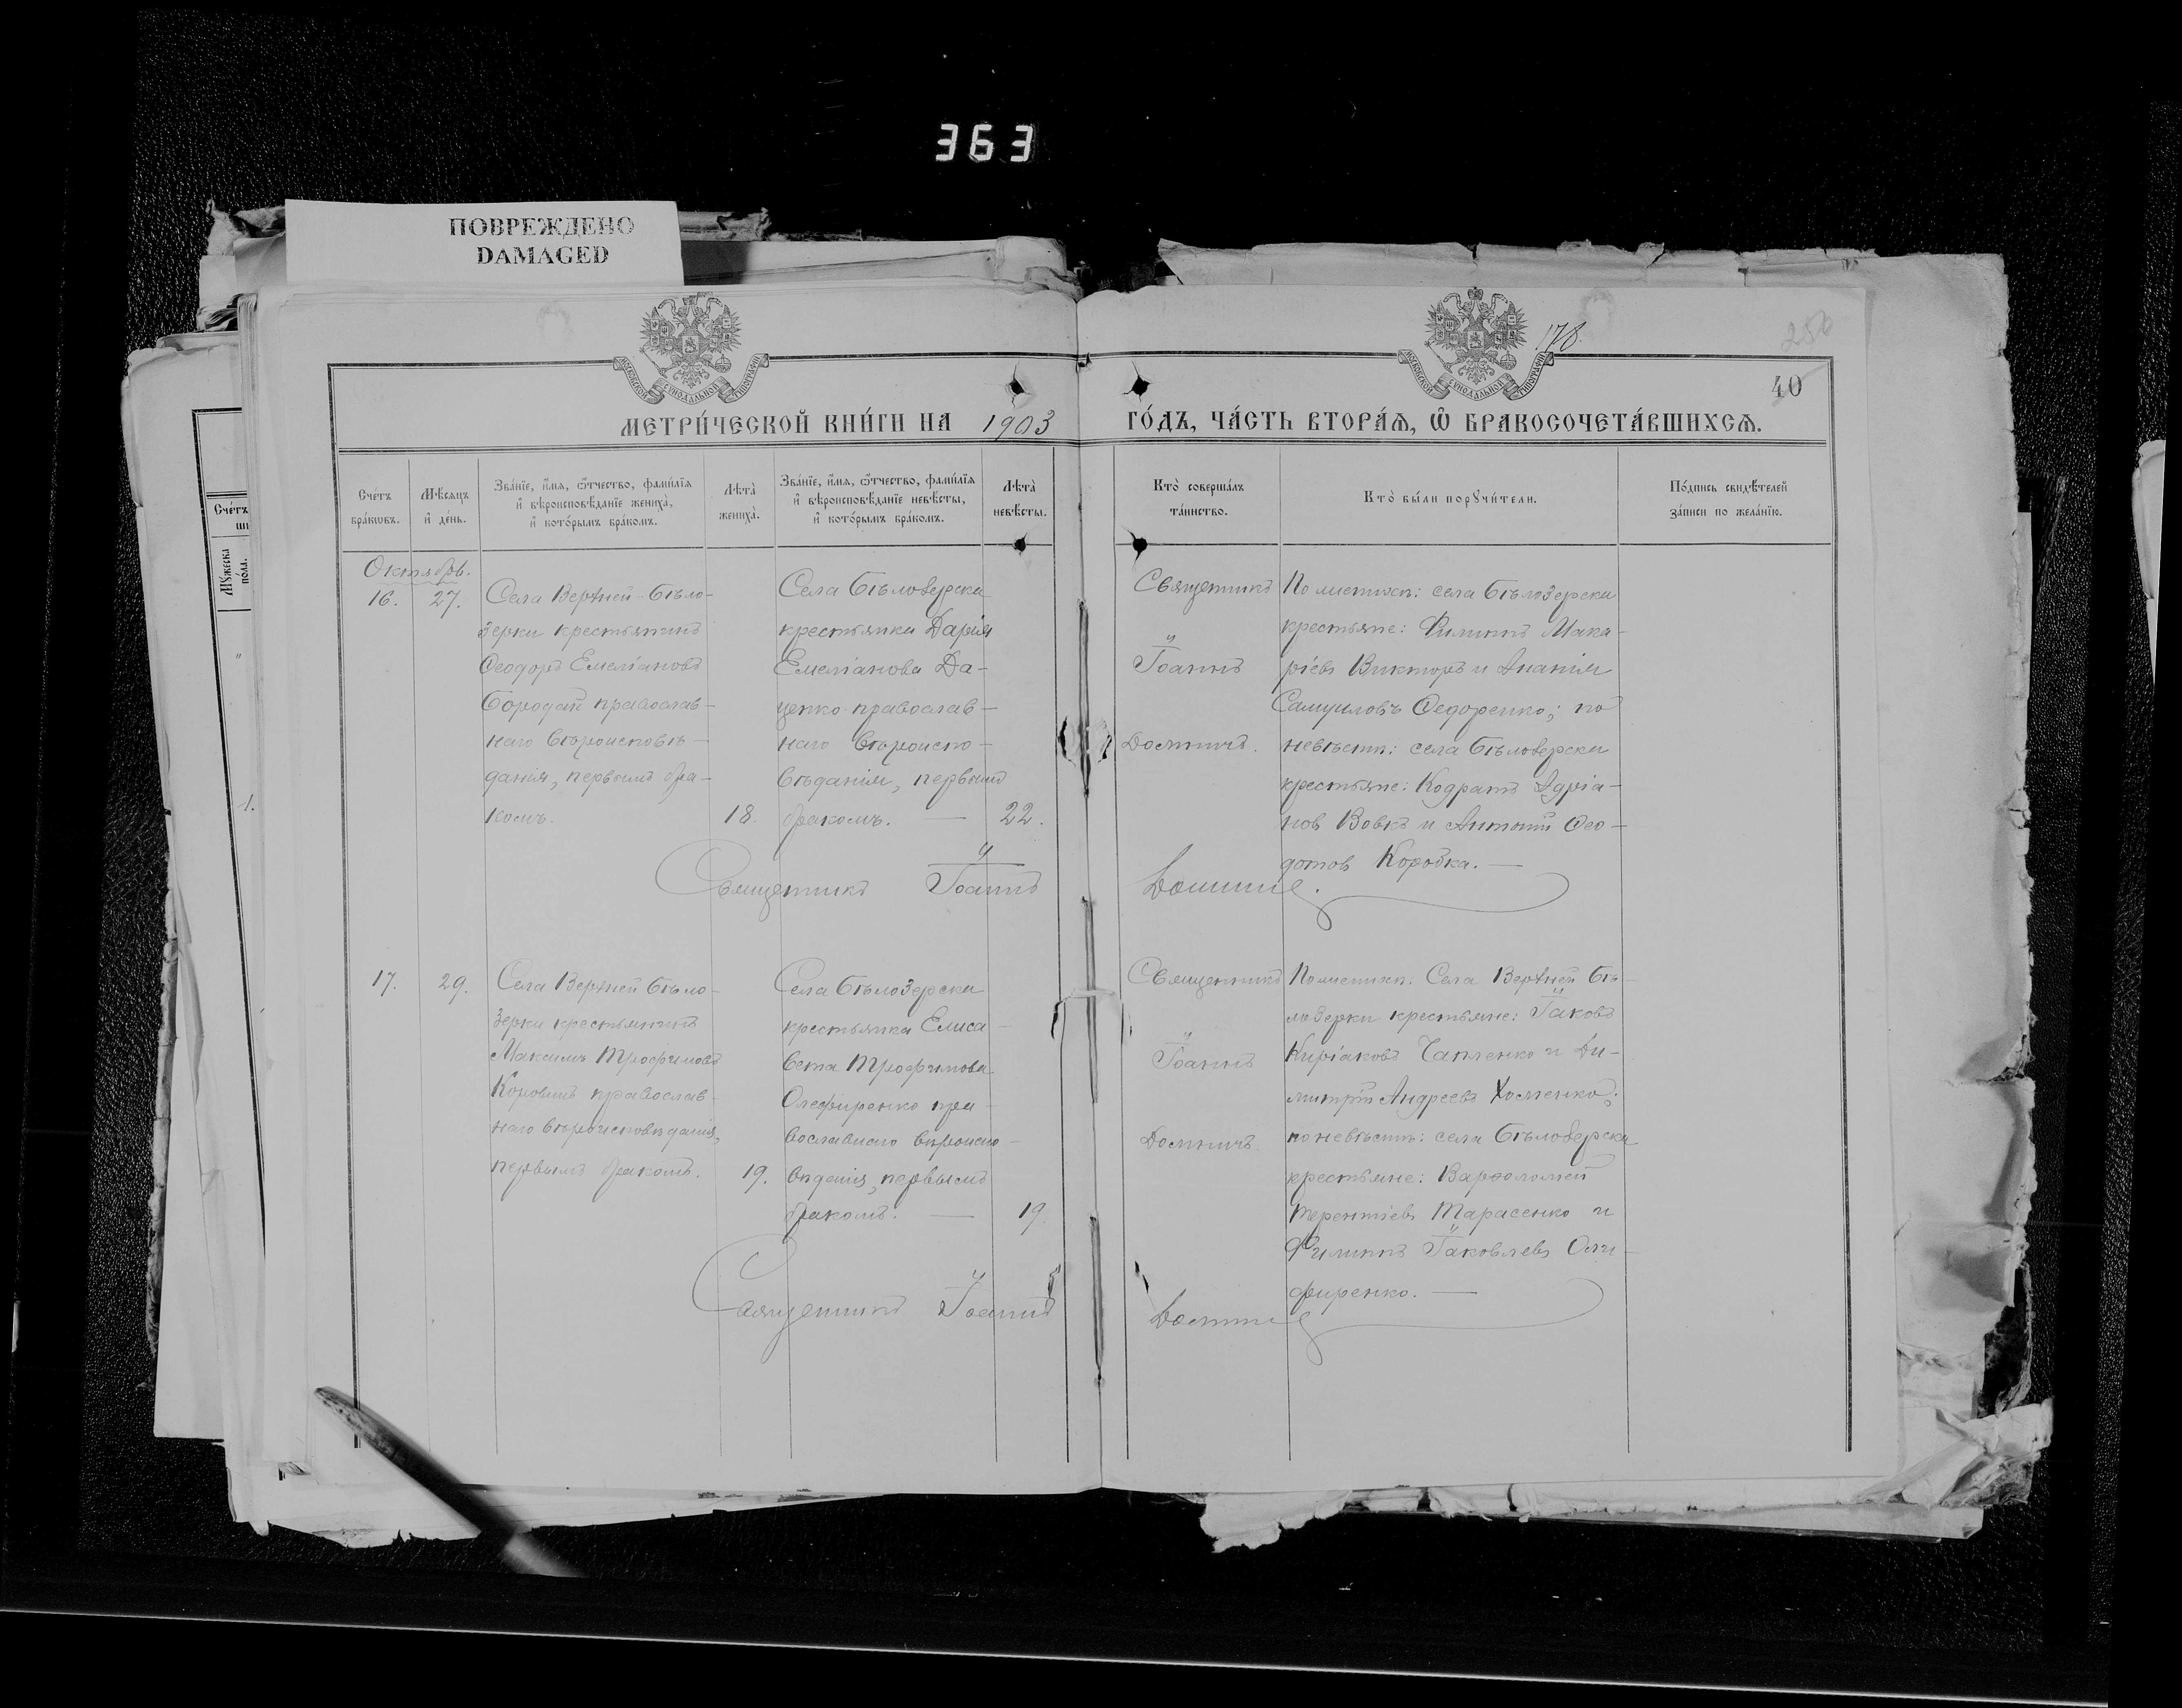 363
ПОВРЕЖДЕНО
DAMAGED
178.
40
МОСКОВСКОЙ СѴНОДАЛЬНОЙ ТИПОГРАФІИ
МОСКОВСКОЙ СѴНОДАЛЬНОЙ ТИПОГРАФІИ
МЕТРИ́ЧЕСКОЙ КНИ́ГИ НА 1903 ГО́ДЪ, ЧА́СТЬ ВТОРА́Ѧ, Ѽ БРАКОСОЧЕТА́ВШИХСѦ.
Сче́тъ
бра́кωвъ.
Мѣ́сѧцъ
и҆ де́нь.
Зва́нїе, и҆́мѧ, ѻ҆́тчество, фами́лїѧ
и҆ вѣроисповѣ́данїе жениха̀,
и҆ кото́рымъ бра́комъ.
Лѣта̀
жениха̀.
Зва́нїе, и҆́мѧ, ѻ҆́тчество, фами́лїѧ
и҆ вѣроисповѣ́данїе невѣ́сты,
и҆ кото́рымъ бра́комъ.
Лѣта̀
невѣ́сты.
Кто̀ соверша́лъ
та́инство.
Кто̀ бы́ли порꙋчи́тели.
По́дпись свидѣ́телей
за́писи по жела́нїю.
Октябрь.
16.
27.
Села Верхней-Бѣло-
зерки крестьянинъ
Ѳеодоръ Емеліановъ
Бородай православ-
наго вѣроисповѣ-
данія, первымъ бра-
комъ.
18.
Села Бѣлозерски
крестьянка Дарія
Емеліанова Да-
ценко православ-
наго вѣроиспо-
вѣданія, первымъ
бракомъ. —
22.
Священникъ
Іоаннъ
По женихѣ: села Бѣлозерски
крестьяне: Филиппъ Мака-
ріевъ Викторъ и Ананія
Самуиловъ Ѳедоренко; по
невѣстѣ: села Бѣлозерски
крестьяне: Кодратъ Адріа-
новъ Вовкъ и Антоній Ѳео-
дотовъ Коробка. —
Священникъ Іоаннъ
17.
29.
Села Верхней Бѣло-
зерки крестьянинъ
Максимъ Трофимовъ
православ-
наго вѣроисповѣданія,
первымъ бракомъ.
19.
Села Бѣлозерски
крестьянка Елиса-
вета Трофимова
Олефиренко пра-
вославнаго вѣроиспо-
вѣданія, первымъ
бракомъ. —
19.
Священникъ
Іоаннъ
По женихѣ: Села Верхней Бѣ-
лозерки крестьяне: Іаковъ
Киріаковъ Чапленко и Ди-
митрій Андреевъ Хоменко;
по невѣстѣ: села Бѣлозерски
крестьяне: Варѳоломей
Терентіевъ Тарасенко и
Филиппъ Іаковлевъ Оли-
фиренко. —
Священникъ Іоаннъ
Сче́тъ
Мꙋ́жеска
по́ла.
1.